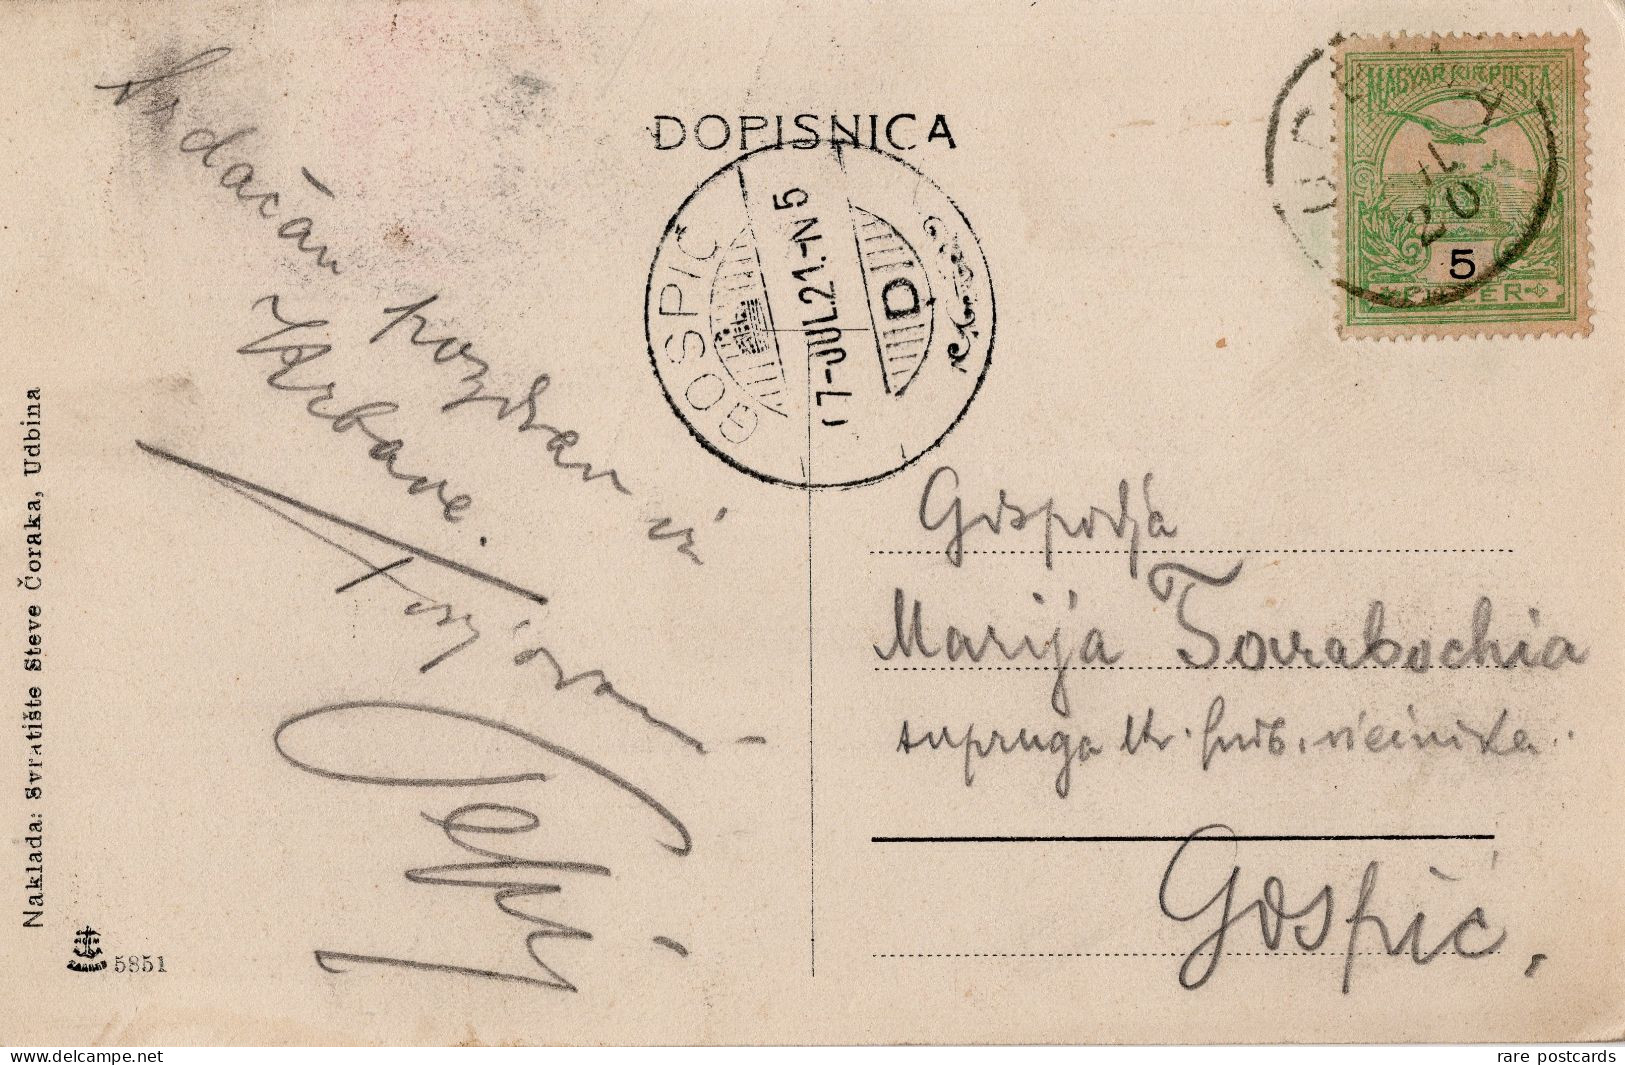 DOPISNICA
MAGYAR KIR. POSTA
20
5
FILLÉR
GOSPIĆ
17-JUL.21.-N5
D
Srdačan
pozdrav iz
Krbave.
Gospodja
Marija Tarabochia
supruga kr.
Gospić.
Naklada: Svratište Steve Čoraka, Udbina
5851
www.delcampe.net
rare postcards